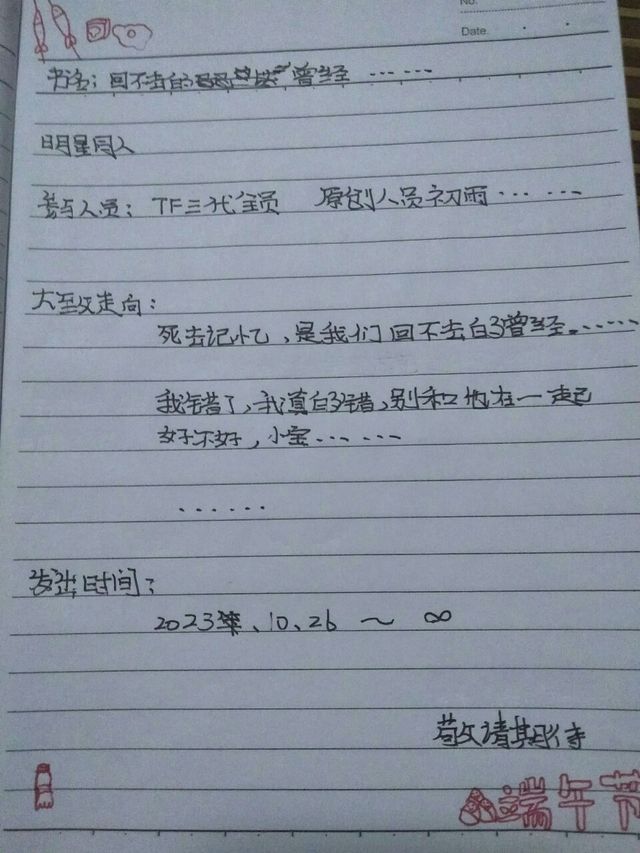 No.
Date.
书名：回不去的曾经……
明星同人
参与人员：TF三代全员 原创人员初雨……
大致走向：
死去记忆，是我们回不去的曾经。……
我错了，我真的错，别和他在一起
好不好，小宝……
……
发出时间：
2023年、10、26 ~ ∞
敬请期待
端午节